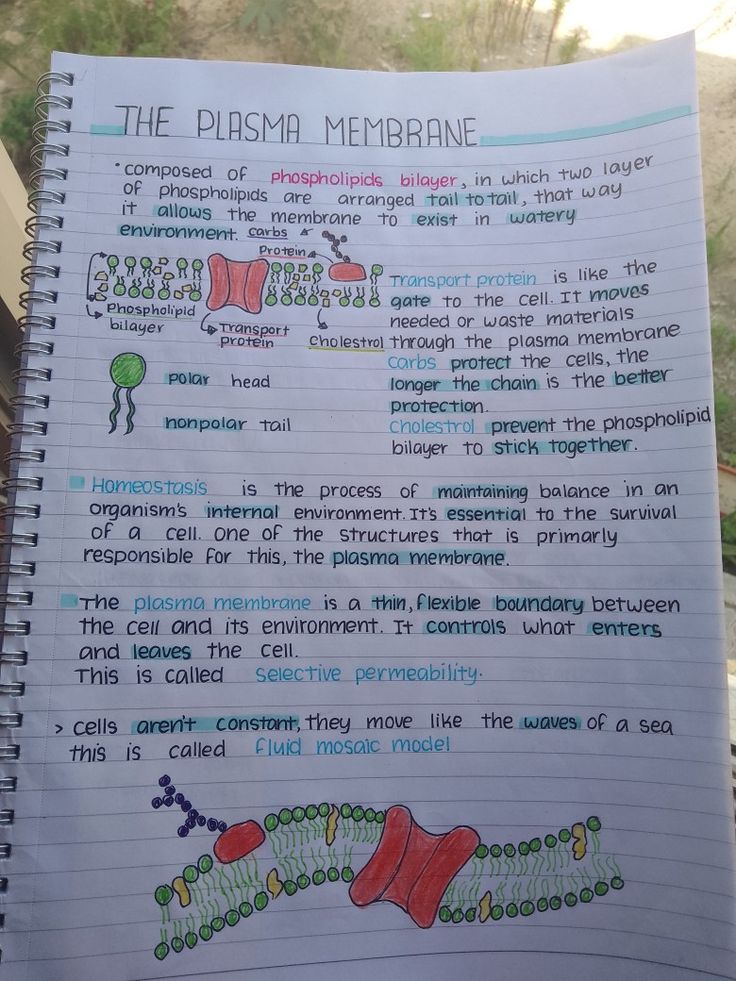 THE PLASMA MEMBRANE
• composed of phospholipids bilayer, in which two layer
of phospholipids are arranged tail to tail, that way
it allows the membrane to exist in watery
environment.
carbs
Protein
Phospholipid
bilayer
Transport
protein
Cholestrol
polar head
nonpolar tail
Transport protein is like the
gate to the cell. It moves
needed or waste materials
through the plasma membrane
Carbs protect the cells, the
longer the chain is the better
protection.
Cholestrol prevent the phospholipid
bilayer to stick together.
Homeostasis is the process of maintaining balance in an
organism's internal environment. It's essential to the survival
of a cell. One of the structures that is primarly
responsible for this, the plasma membrane.
The plasma membrane is a thin, flexible boundary between
the cell and its environment. It controls what enters
and leaves the cell.
This is called selective permeability.
> cells aren't constant, they move like the waves of a sea
this is called fluid mosaic model